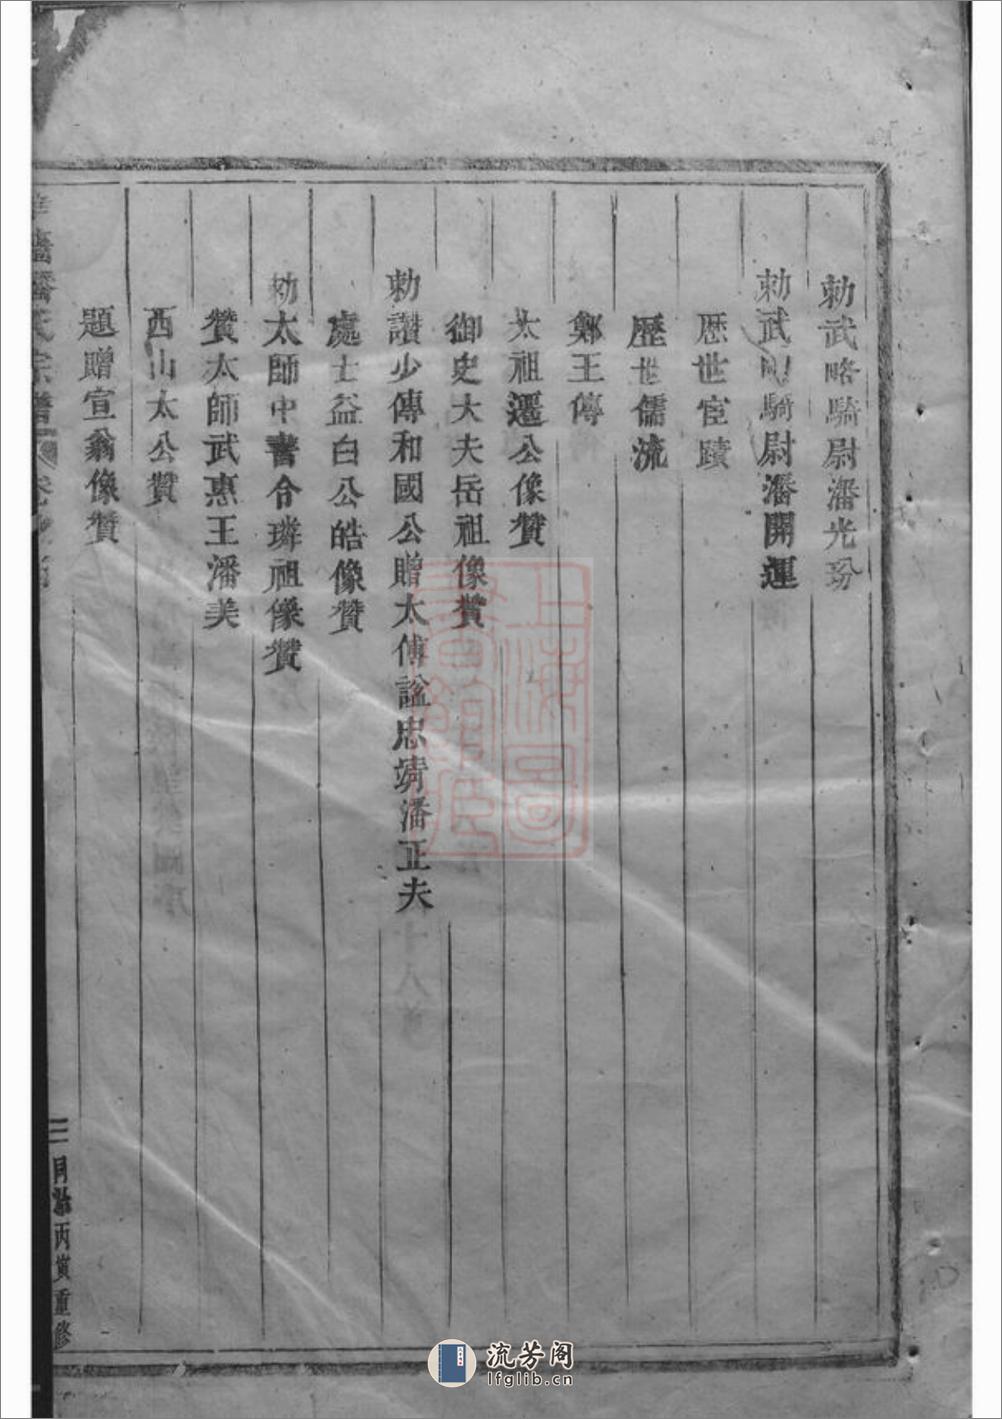 勅武略騎尉潘光玢
勅武略騎尉潘開運
歴世宦蹟
歴世儒流
鄭王傳
太祖暹公像贊
御史大夫岳祖像贊
勅讚少傳和國公贈太傅諡忠靖潘正夫
處士益白公皓像贊
勅太師中書令璘祖像贊
贊太師武惠王潘美
西山太公贊
題贈宣翁像贊
潘氏宗譜
二
同治丙寅重修
上海圖書館藏
流芳阁
lfglib.cn